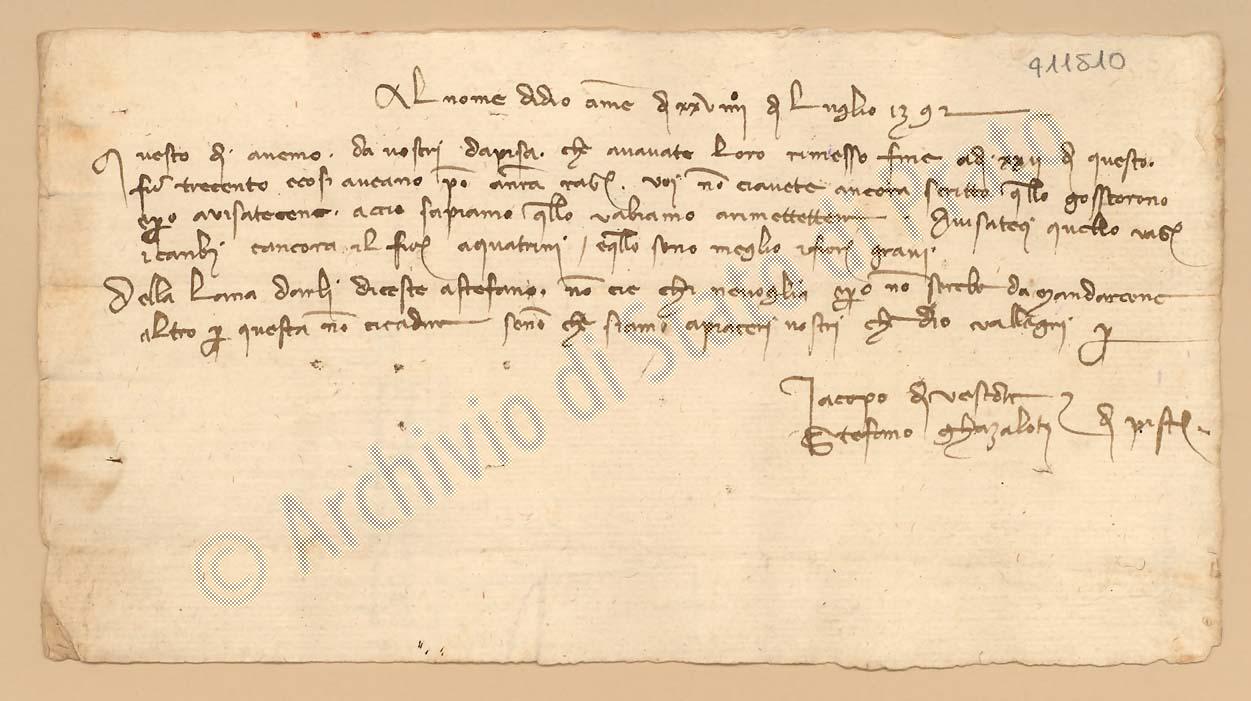 911810
Al nome di dio ame di xxviiii di Luglio 1392
Questo di avemo. da vostri da pisa. che avavate loro rimesso fine ad xxii di questo.
fi trecento e cosi aveano p anchra voi no ciavete ancora scritto qllo gosstorono
pero avisatecene. accio sapiamo qllo vabiamo a rimettere Avisateci quello vagl
i canbi e ancora il fior a quatrini / e qllo sono meglio i fiori gravi
Della lana d'arli diceste a stefano. no cie chi ne voglia pero no serebe da mandarcene
altro p questa no ci cadire seno che siamo a piaceri vostri che dio vallegri p
Jacopo di
Stefano ghazaloti di
© Archivio di Stato di Prato